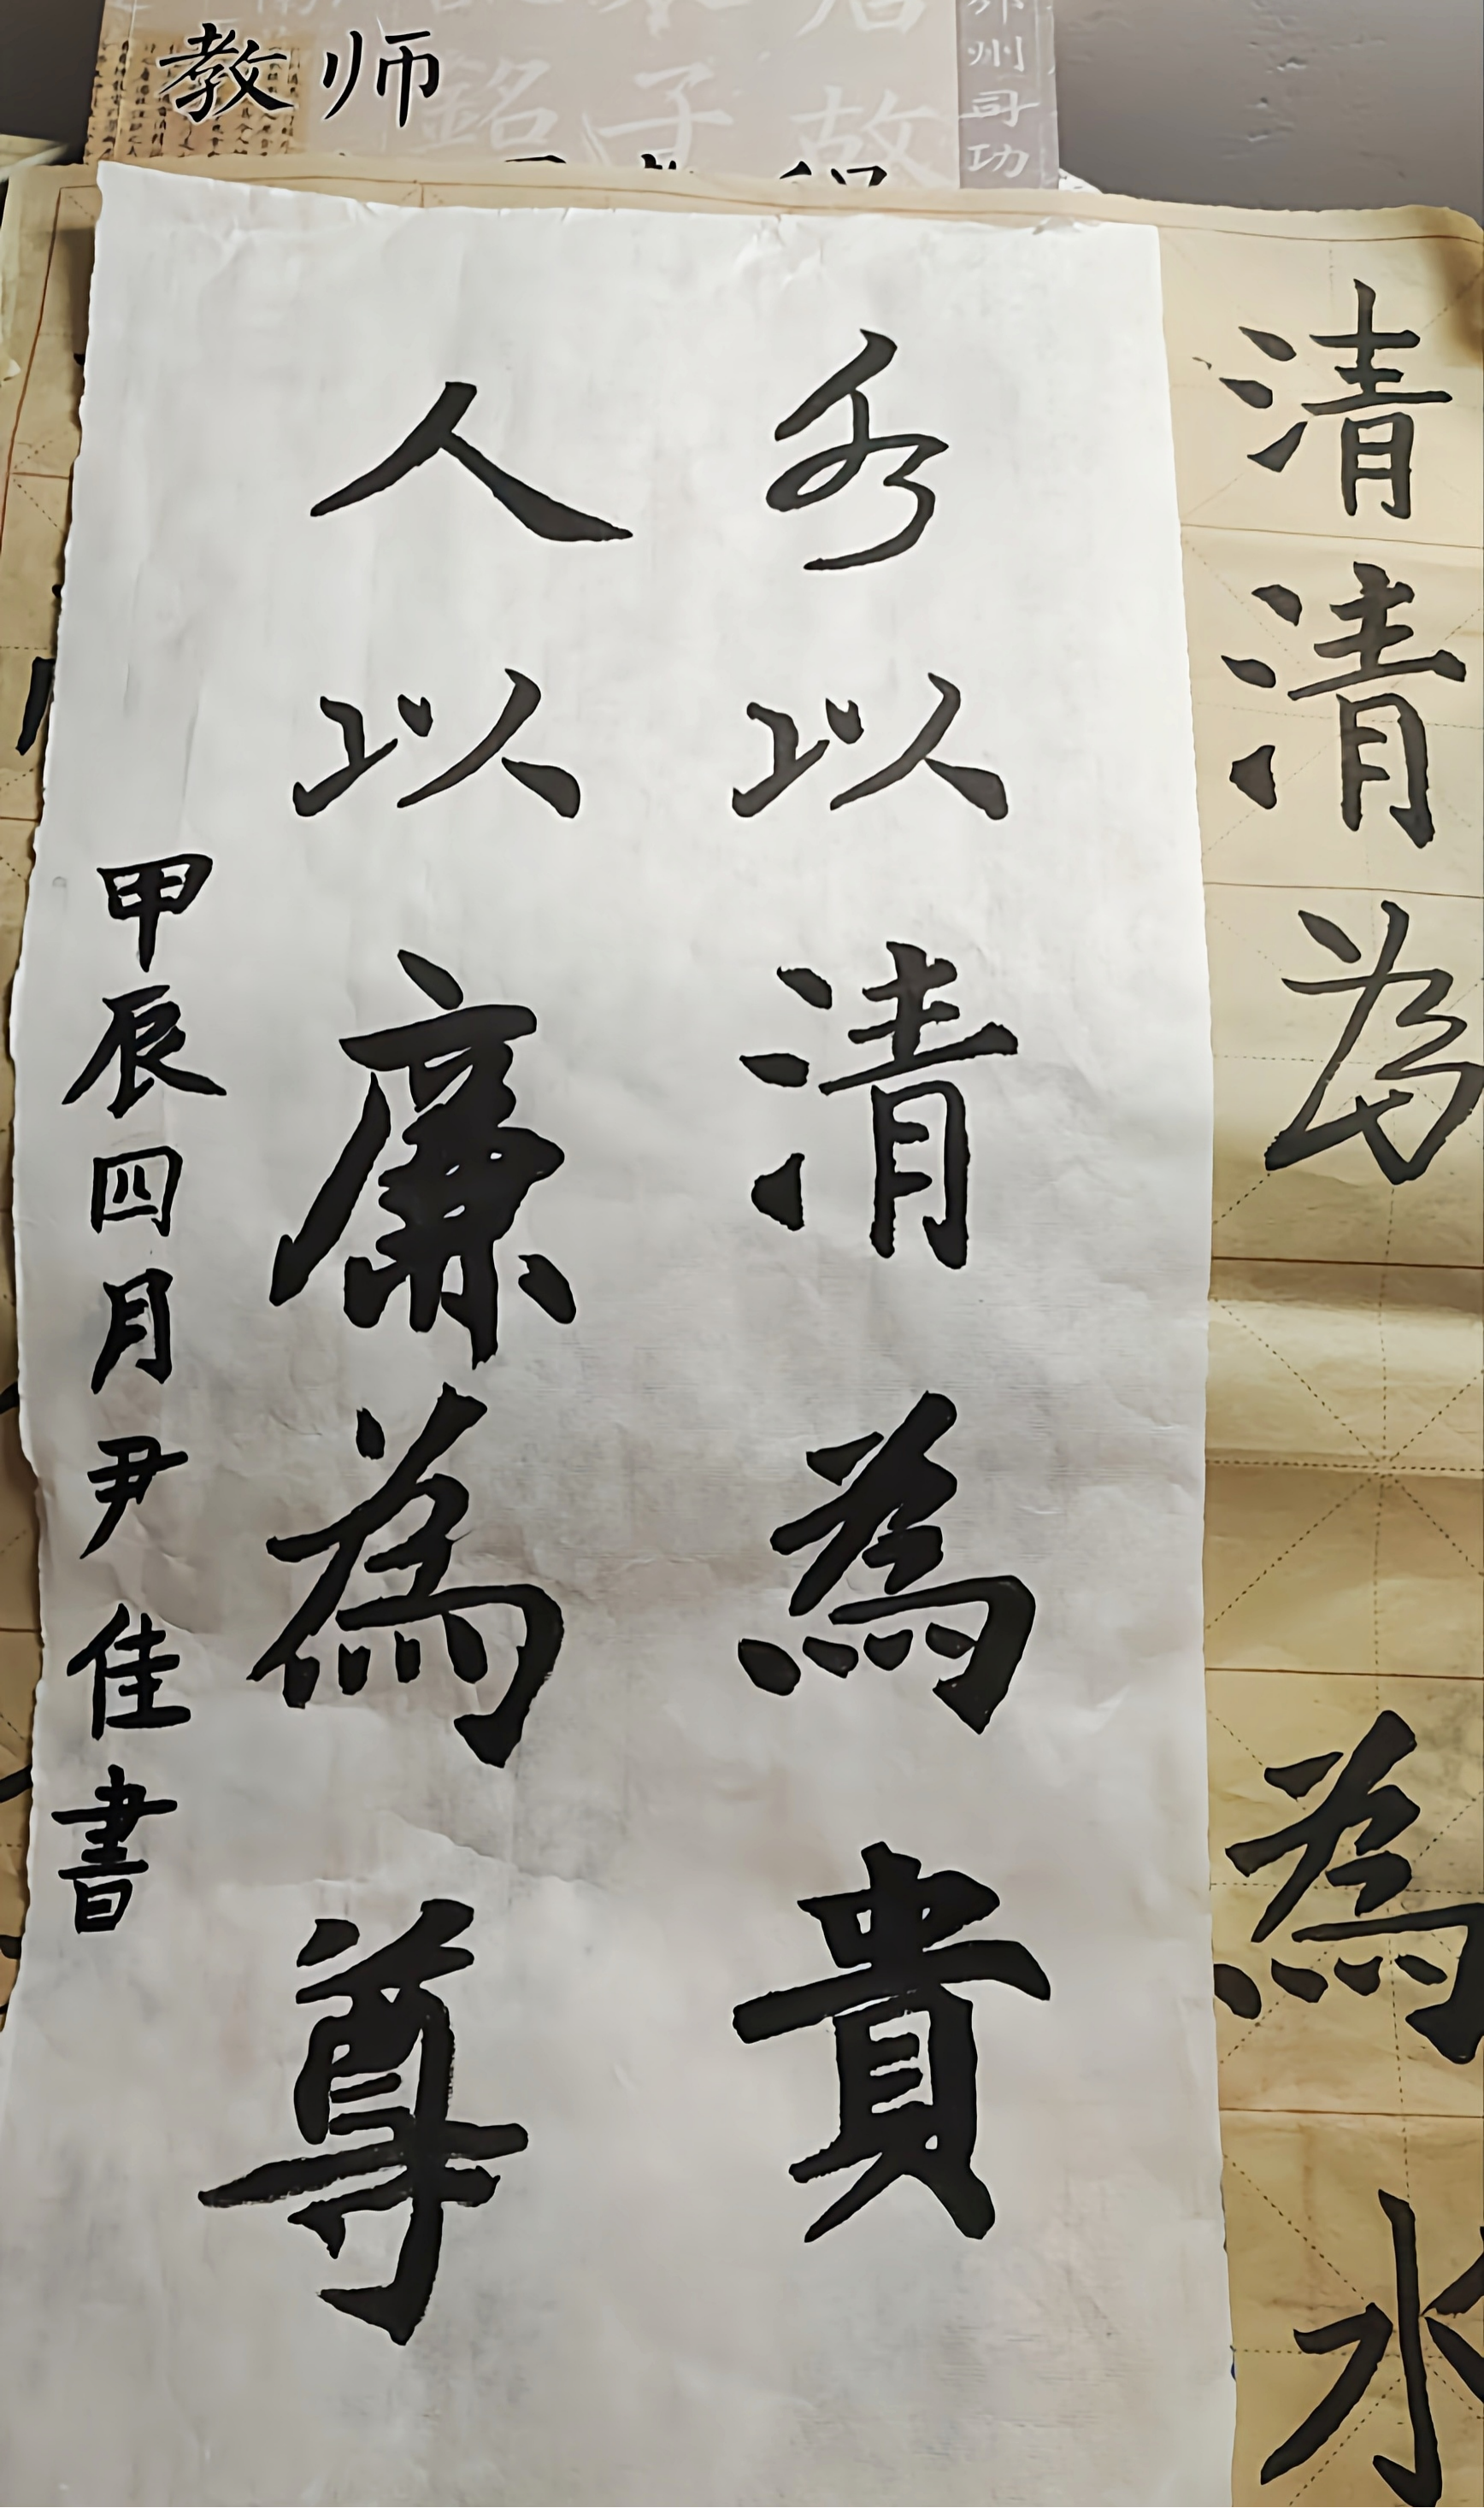 教师
清清為為水
水以清為貴
人以廉為尊
甲辰四月尹佳書
州司功
銘子故